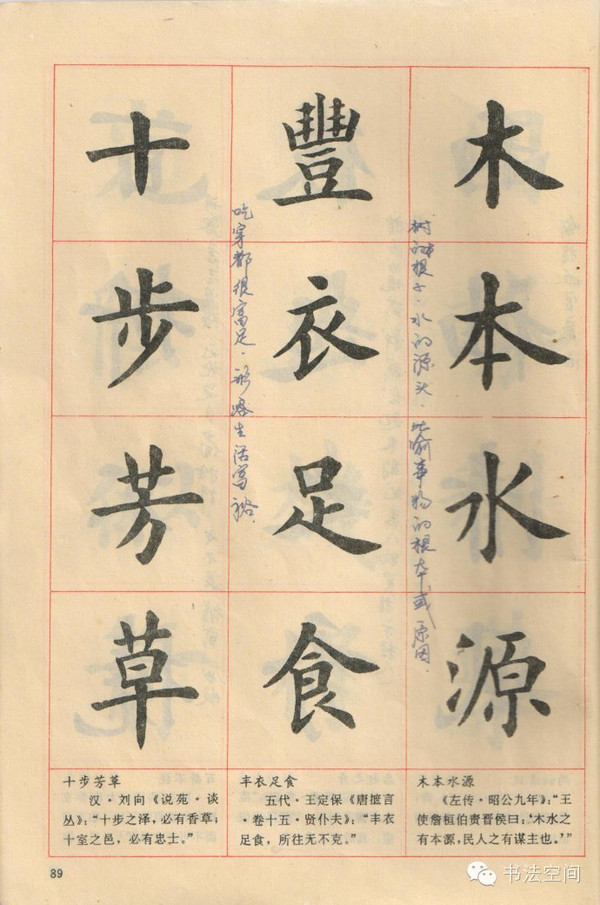 木本水源
树的根子．水的源头．比喻事物的根本或原因．
豐衣足食
吃穿都很富足．形容生活富裕．
十步芳草
木本水源
《左传·昭公九年》：“王
使詹桓伯责晋侯曰：‘木水之
有本源，民人之有谋主也。’”
丰衣足食
五代·王定保《唐摭言
·卷十五·贤仆夫》：“丰衣
足食，所往无不克。”
十步芳草
汉·刘向《说苑·谈
丛》：“十步之泽，必有香草；
十室之邑，必有忠士。”
89
书法空间